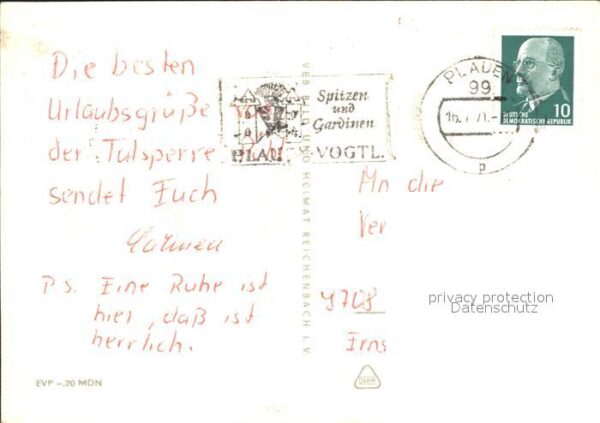 Die besten
Urlaubsgrüße
der Talsperre
sendet Euch
Carmen
P.S. Eine Ruhe ist
hier, daß ist
herrlich.
EVP –.20 MDN
VEB BILD UND HEIMAT REICHENBACH I. V.
Spitzen
und
Gardinen
PLAUEN VOGTL.
PLAUEN
99
16.7.71.-
p
10
DEUTSCHE
DEMOKRATISCHE REPUBLIK
An die
Ver
9708
Irns
privacy protection
Datenschutz